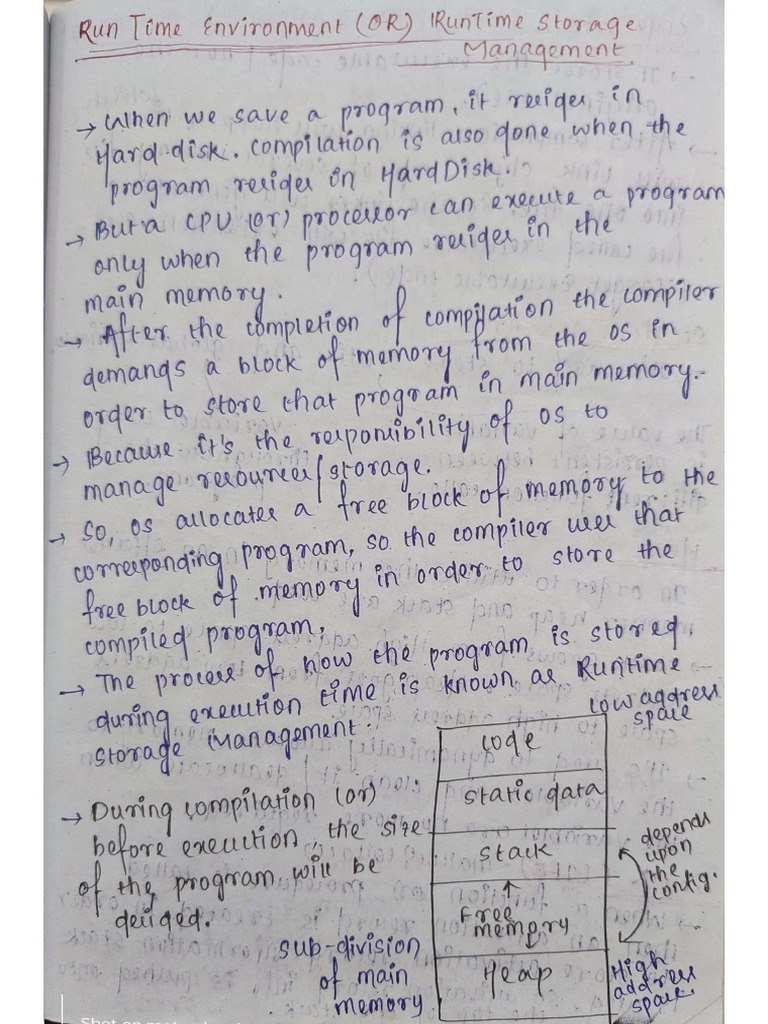 Run Time Environment (OR) RunTime Storage
Management
→ When we save a program, it resides in
Hard disk. compilation is also done when the
program resides in HardDisk.
→ But a CPU (or) processor can execute a program
only when the program resides in the
main memory.
→ After the completion of compilation the compiler
demands a block of memory from the OS in
order to store that program in main memory.
→ Because it's the responsibility of OS to
manage resources/storage.
→ So, OS allocates a free block of memory to the
corresponding program, so the compiler uses that
free block of memory in order to store the
compiled program.
→ The process of how the program is stored
during execution time is known as Runtime
Storage Management.
Low address
space
code
static data
stack
Free
memory
Heap
depends
upon
the
config.
High
address
space
→ During compilation (or)
before execution, the size
of the program will be
decided.
sub-division
of main
memory
Shot on